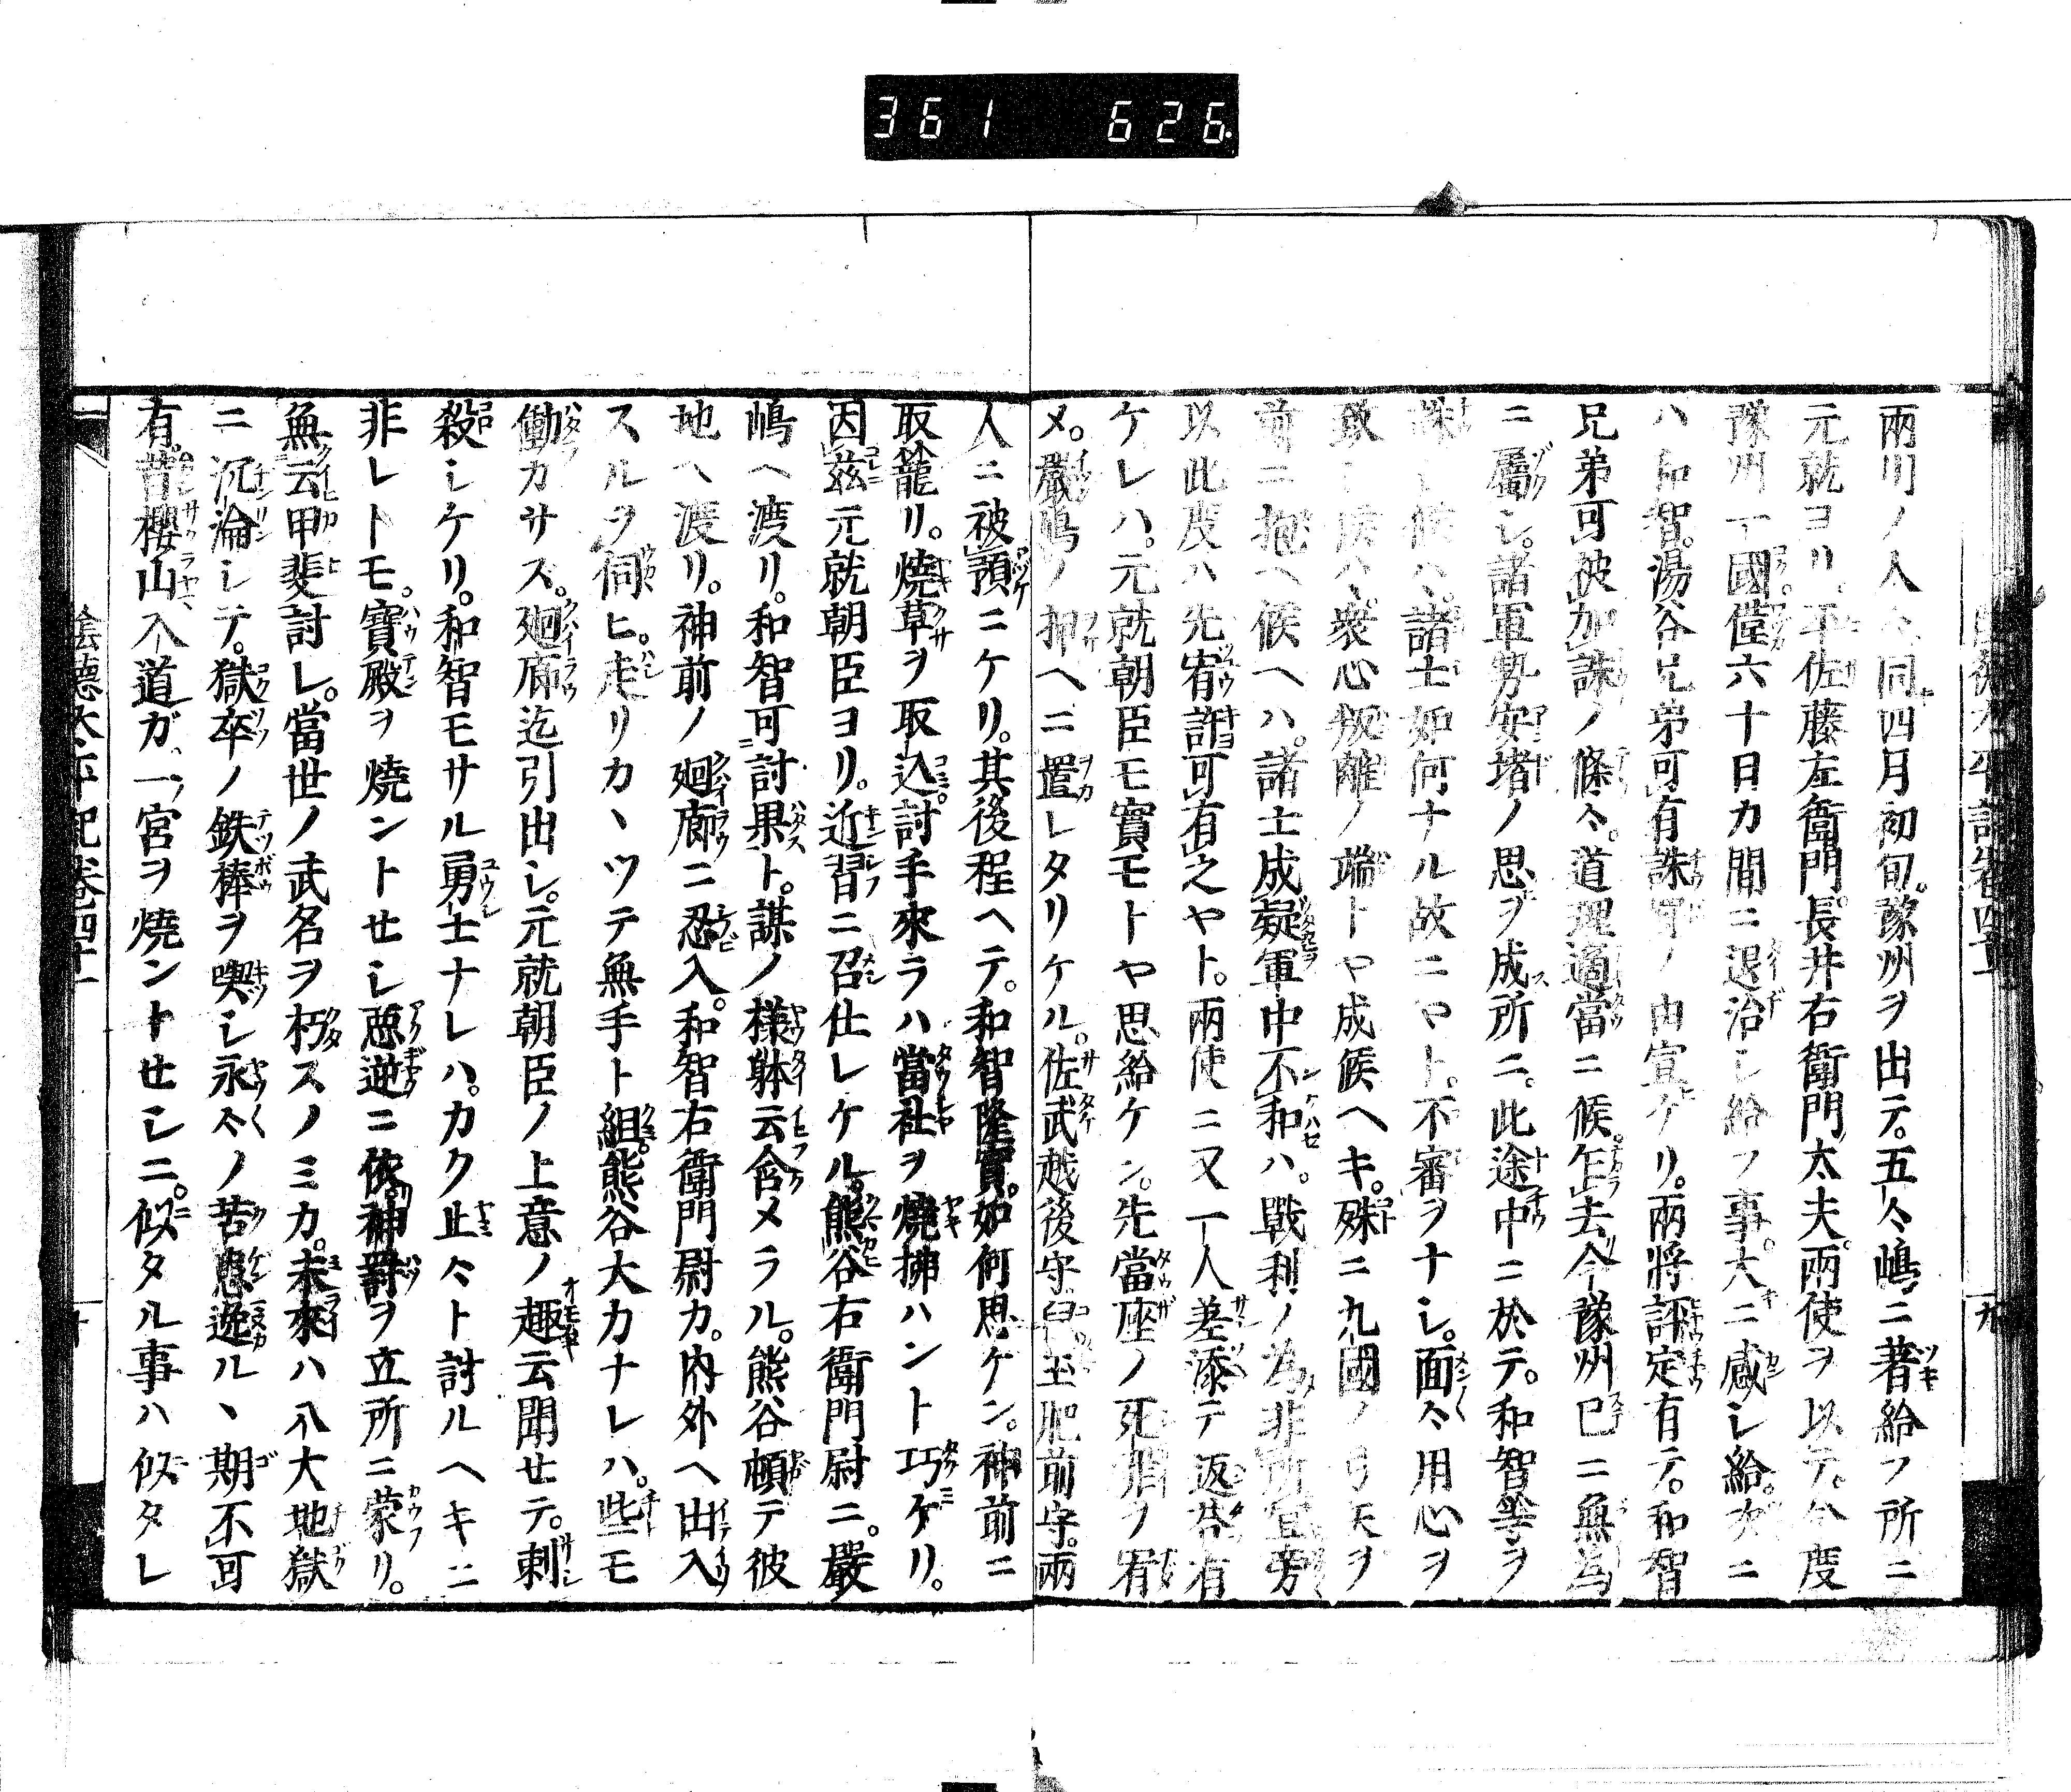 361 626
兩川ノ人々同四月初旬。豫州ヲ出テ。五々嶋ニ著給フ所ニ
元就ヨリ。平佐藤左衞門。長井右衞門太夫。兩使ヲ以テ。今度
豫州一國。僅六十日カ間ニ退治シ給フ事。大ニ感シ給。次ニ
ハ和智。湯谷兄弟可有誅罸ノ由宣ケリ。兩將評定有テ。和智
兄弟可被加誅ノ條々。道理適當ニ候。乍去今豫州已ニ無為
ニ屬シ。諸軍勢安堵ノ思ヲ成所ニ。此途中ニ於テ。和智等ヲ
誅シ候ハヽ。諸士如何ナル故ニヤト。不審ヲナシ。面々用心ヲ
致シ候ハヽ。衆心叛離ノ端トヤ成候ヘキ。殊ニ九國ノ弓矢ヲ
前ニ抱ヘ候ヘハ。諸士成疑軍中不和ハ。戰利ノ為非所宜旁
以此度ハ先宥諸可有之ヤト。兩使ニ又一人差添テ返答有
ケレハ。元就朝臣モ實モトヤ思給ケン。先當座ノ死罪ヲ宥
メ。嚴嶋ノ押ヘニ置レタリケル。佐武越後守兒玉肥前守。兩
人ニ被預ニケリ。其後程ヘテ。和智隆實。如何思ケン。神前ニ
取籠リ。燒草ヲ取込。討手來ラハ當社ヲ燒拂ハント巧ケリ。
因茲元就朝臣ヨリ。近習ニ召仕レケル。熊谷右衞門尉ニ。嚴
嶋ヘ渡リ。和智可討果ト。謀ノ樣躰云含メラル。熊谷頓テ彼
地ヘ渡リ。神前ノ廻廊ニ忍入。和智右衞門尉カ。内外ヘ出入
スルヲ伺ヒ。走リカヽツテ無手ト組。熊谷大力ナレハ。些モ
働カサス。廻廊迄引出シ。元就朝臣ノ上意ノ趣云聞せテ。刺
殺シケリ。和智モサル勇士ナレハ。カク止々ト討ルヘキニ
非レトモ。寶殿ヲ燒ントせシ惡逆ニ依。神罸ヲ立所ニ蒙リ。
無云甲斐討レ。當世ノ武名ヲ朽スノミカ。未來ハ八大地獄
ニ沉淪シテ。獄卒ノ鉄棒ヲ喫シ永々ノ苦患遁ルヽ期不可
有。昔櫻山入道ガ、一宮ヲ燒ントせシニ。似タル事ハ似タレ
陰德太平記卷四十一